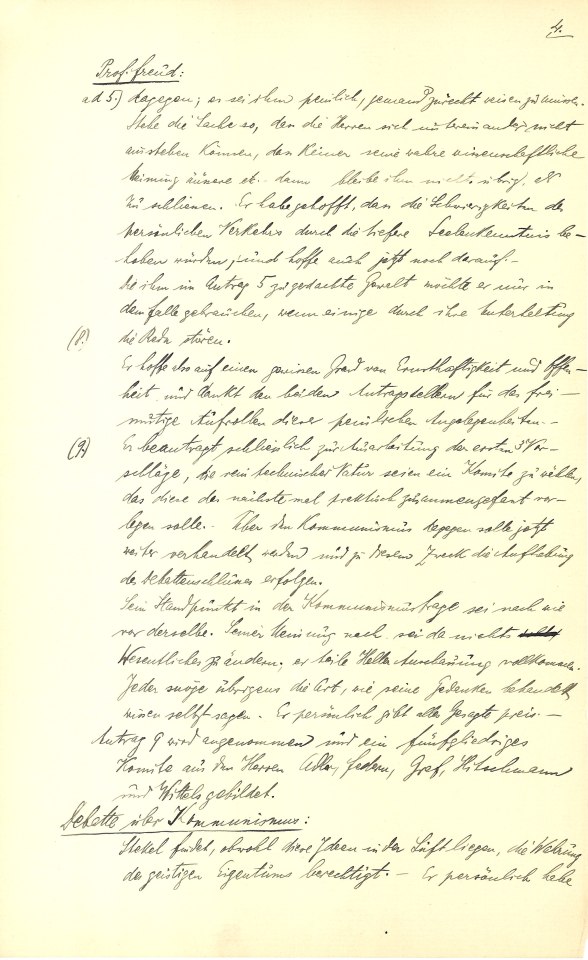 4.
Prof. Freud:
ad 5.) dagegen; es sei ihm peinlich, jemand zurecht weisen zu müssen.
Stehe die Sache so, dass die Herren sich untereinander nicht
ausstehen können, dass keiner seine wahre wissenschaftliche
Meinung äussere etc. dann bleibe ihm nichts übrig, als
zu schliessen. Er habe gehofft, dass die Schwierigkeiten des
persönlichen Verkehrs durch die tiefere Seelenkenntnis be-
hoben würden, und hoffe auch jetzt noch darauf. -
Die ihm im Antrag 5 zugedachte Gewalt möchte er nur in
dem Falle gebrauchen, wenn einige durch ihre Unterhaltung
(8.) die Redn stören.
Er hoffe also auf einen gewissen Grad von Ernsthaftigkeit und Offen-
heit und dankt den beiden Antragstellern für das frei-
mütige Aufrollen dieser peinlichen Angelegenheiten. -
(9) Er beantragt schliesslich zur Ausarbeitung der ersten 3 Vor-
schläge, die rein technischer Natur seien ein Komite zu wählen,
das diese das nächste mal praktisch zusammengefasst vor-
legen solle. - Über den Kommunismus dagegen solle jetzt
weiter verhandelt werden und zu diesem Zweck die Aufhebung
des Debattenschlusses erfolgen.
Sein Standpunkt in der Kommunismusfrage sei nach wie
vor derselbe. Seiner Meinung nach sei da nichts
Wesentliches zu ändern; er teile Hellers Anschauung vollkommen.
Jeder möge übrigens die Art, wie seine Gedanken behandelt
wissen selbst sagen. - Er persönlich gibt alles Gesagte preis. -
Antrag 9 wird angenommen und ein fünfgliedriges
Komite aus den Herren Adler, Federn, Graf, Hitschmann
und Wittels gebildet.
Debatte über Kommunismus:
Stekel findet, obwohl diese Ideen in der Luft liegen, die Wahrung
des geistigen Eigentums berechtigt. - Er persönlich habe